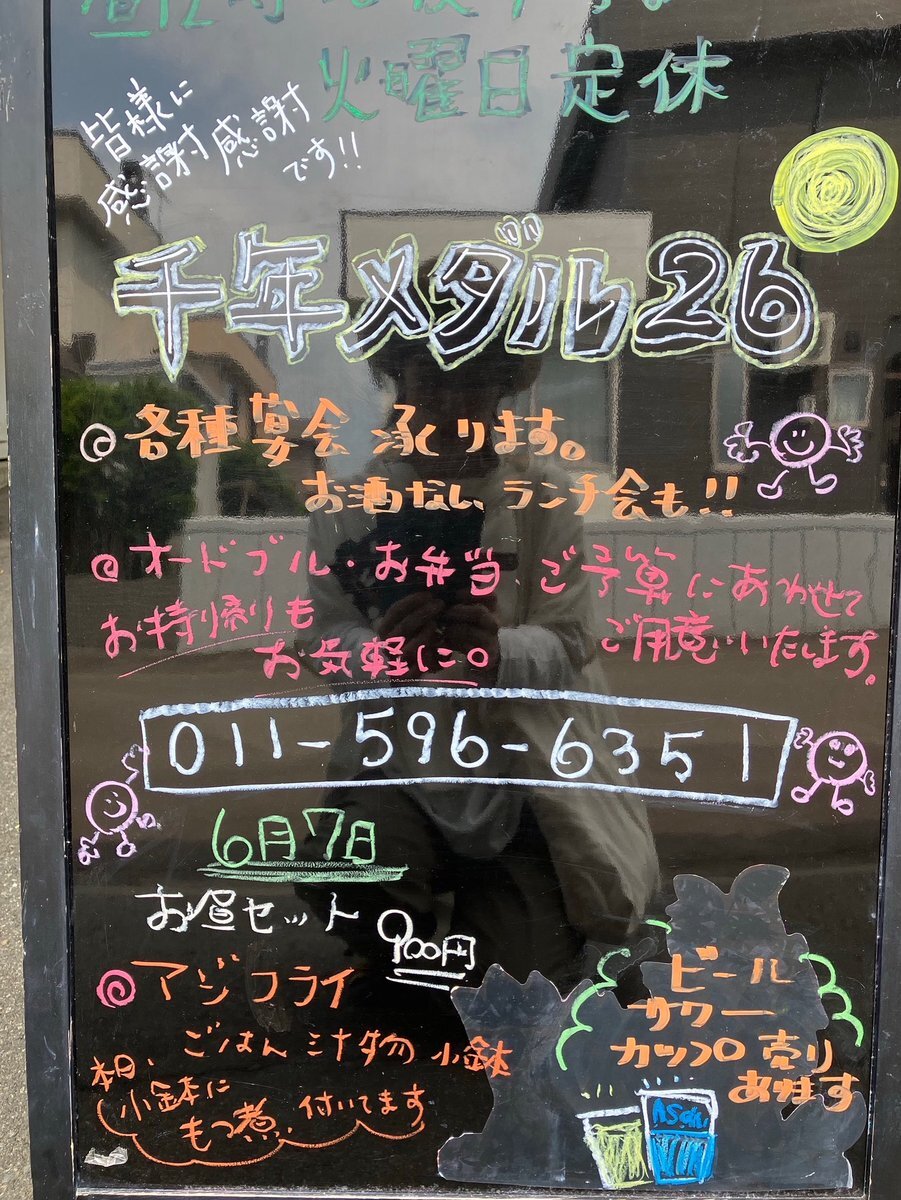 火曜日定休
皆様に
感謝感謝
です!!
千年メダル26
各種宴会 承ります。
お酒ない、ランチ会も!!
オードブル・お弁当、ご予算にあわせて
ご用意いたします。
お持り帰りも
お気軽に。
011-596-6351
6月7日
お昼セット 900円
アジフライ
ごはん 汁物 小鉢
本日、
小鉢に
もつ煮、付いてます
ビール
サワー
カップ 売り
あります
Asahi